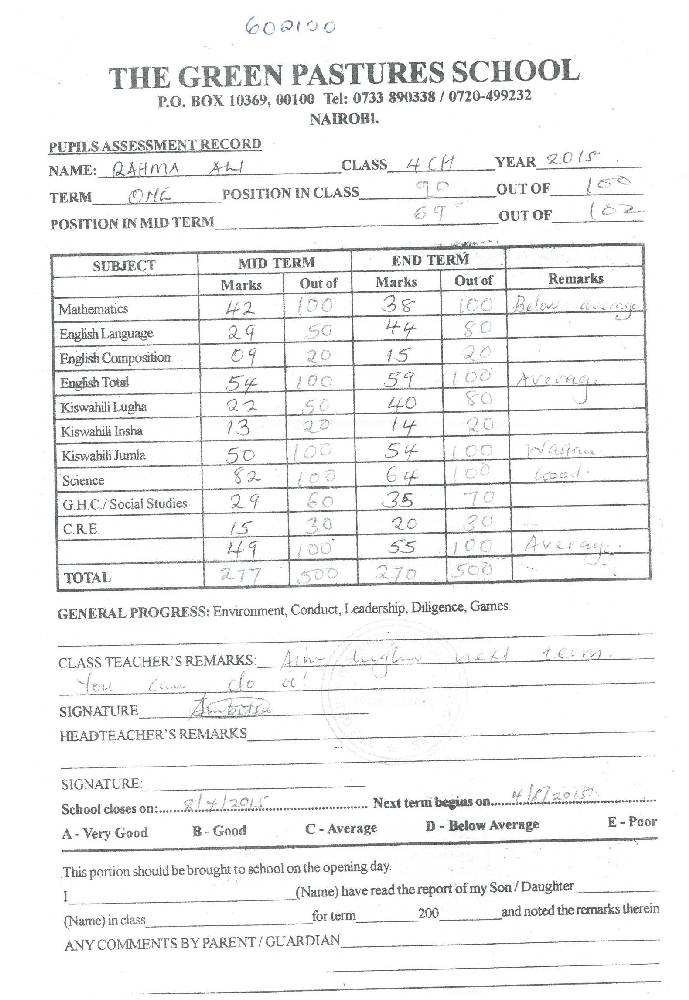 602100
THE GREEN PASTURES SCHOOL
P.O. BOX 10369, 00100 Tel: 0733 890338 / 0720-499232
NAIROBI.
PUPILS ASSESSMENT RECORD
NAME: RAHMA ALI CLASS 4 CH YEAR 2015
TERM ONE POSITION IN CLASS 90 OUT OF 100
POSITION IN MID TERM 69 OUT OF 102
SUBJECT MID TERM END TERM
Marks Out of Marks Out of Remarks
Mathematics 42 100 38 100 Below average
English Language 29 50 44 80
English Composition 09 20 15 20
English Total 54 100 59 100 Average
Kiswahili Lugha 22 50 40 80
Kiswahili Insha 13 20 14 20
Kiswahili Jumla 50 100 54 100 Wastani
Science 82 100 64 100 Good.
G.H.C./ Social Studies 29 60 35 70
C.R.E. 15 30 20 30
49 100 55 100 Average.
TOTAL 277 500 270 500
GENERAL PROGRESS: Environment, Conduct, Leadership, Diligence, Games.
CLASS TEACHER'S REMARKS: Aim higher next term.
You can do it!
SIGNATURE
HEADTEACHER'S REMARKS
SIGNATURE:
School closes on: 8/4/2015 Next term begins on 4/5/2015
A - Very Good B - Good C - Average D - Below Average E - Poor
This portion should be brought to school on the opening day.
I (Name) have read the report of my Son / Daughter
(Name) in class for term 200 and noted the remarks therein
ANY COMMENTS BY PARENT / GUARDIAN